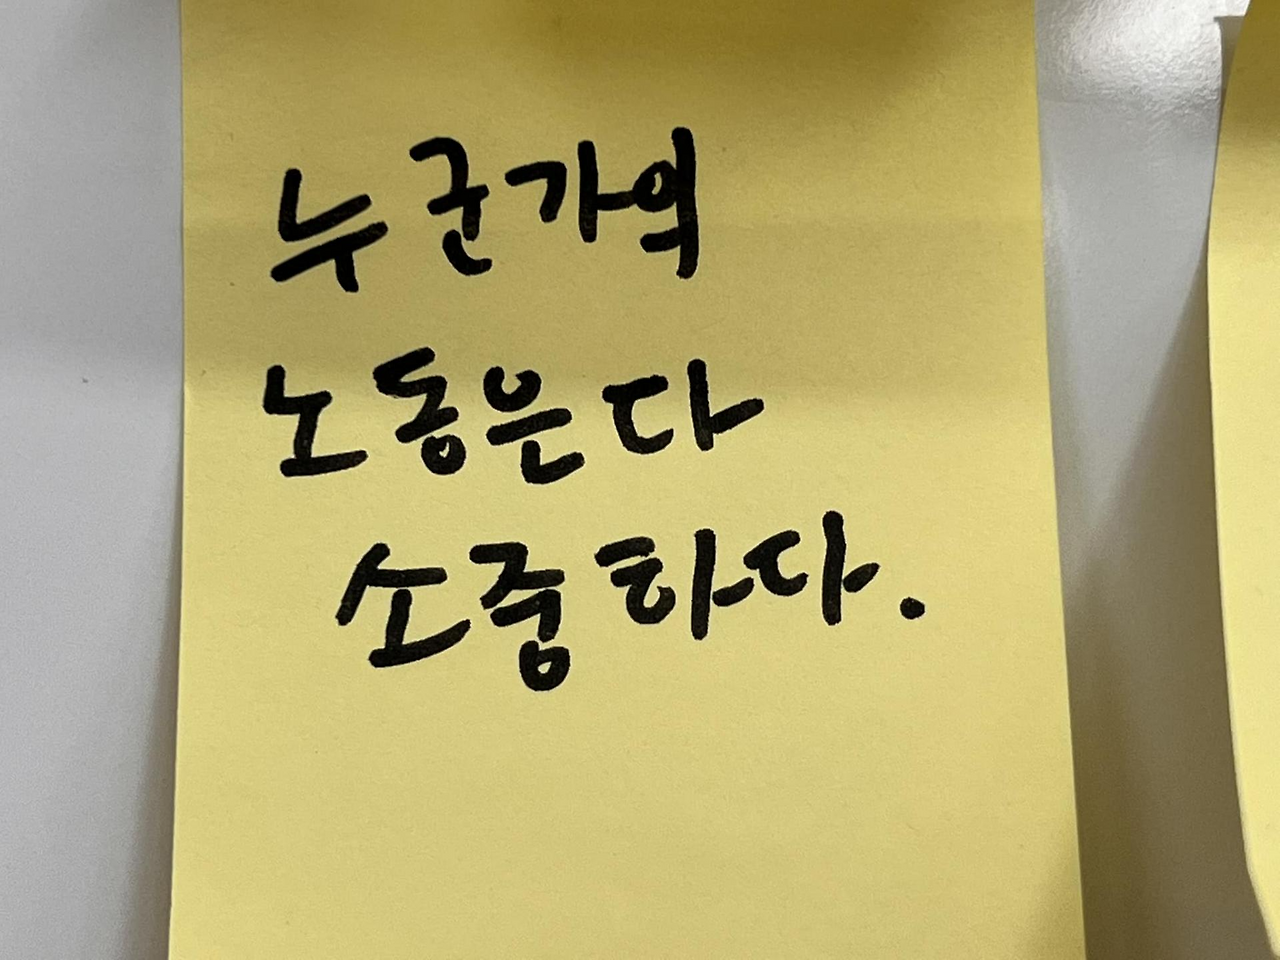 누군가의
노동은 다
소중하다.